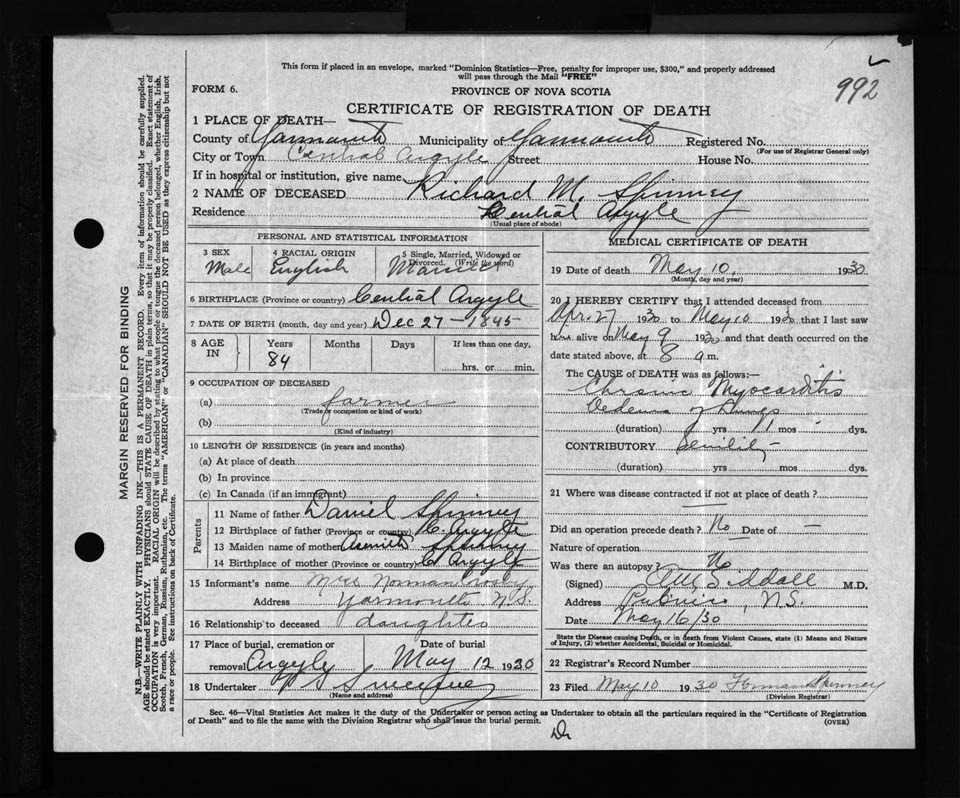 This form if placed in an envelope, marked "Dominion Statistics—Free, penalty for improper use, $300," and properly addressed
will pass through the Mail "FREE"
992
FORM 6.
PROVINCE OF NOVA SCOTIA
CERTIFICATE OF REGISTRATION OF DEATH
1 PLACE OF DEATH—
County of Yarmouth Municipality of Yarmouth Registered No.
(For use of Registrar General only)
City or Town Central Argyle Street House No.
If in hospital or institution, give name
2 NAME OF DECEASED Richard M. Spinney
Residence Central Argyle
(Usual place of abode)
PERSONAL AND STATISTICAL INFORMATION
3 SEX 4 RACIAL ORIGIN 5 Single, Married, Widowed or
Divorced. (Write the word)
Male English Married
6 BIRTHPLACE (Province or country) Central Argyle
7 DATE OF BIRTH (month, day and year) Dec 27 - 1845
8 AGE IN Years Months Days If less than one day,
84 hrs. or min.
9 OCCUPATION OF DECEASED
(a) farmer
(Trade or occupation or kind of work)
(b)
(Kind of industry)
10 LENGTH OF RESIDENCE (in years and months)
(a) At place of death
(b) In province
(c) In Canada (if an immigrant)
Parents
11 Name of father Daniel Spinney
12 Birthplace of father (Province or country) C. Argyle
13 Maiden name of mother Spinney
14 Birthplace of mother (Province or country) C Argyle
15 Informant's name Mrs Norman Crosby
Address Yarmouth N.S.
16 Relationship to deceased daughter
17 Place of burial, cremation or Date of burial
removal Argyle May 12 1930
18 Undertaker Sweeney
(Name and address)
MEDICAL CERTIFICATE OF DEATH
19 Date of death May 10, 1930.
(Month, day and year)
20 I HEREBY CERTIFY that I attended deceased from
Apr. 27 1930 to May 10 1930 that I last saw
him alive on May 9 1930 and that death occurred on the
date stated above, at 8 a m.
The CAUSE OF DEATH was as follows:—
Chronic Myocarditis
Oedema of Lungs
(duration) yrs mos dys.
CONTRIBUTORY Senility
(duration) yrs mos dys.
21 Where was disease contracted if not at place of death?
Did an operation precede death? No Date of —
Nature of operation
Was there an autopsy? No
(Signed) Siddall M.D.
Address Pubnico, N.S.
Date May 16/30
State the Disease causing Death, or in death from Violent Causes, state (1) Means and Nature
of Injury, (2) whether Accidental, Suicidal or Homicidal.
22 Registrar's Record Number
23 Filed May 10 1930 Forman Spinney
(Division Registrar)
Sec. 46—Vital Statistics Act makes it the duty of the Undertaker or person acting as Undertaker to obtain all the particulars required in the "Certificate of Registration
of Death" and to file the same with the Division Registrar who shall issue the burial permit.
(OVER)
MARGIN RESERVED FOR BINDING
N.B.—WRITE PLAINLY WITH UNFADING INK—THIS IS A PERMANENT RECORD. Every item of information should be carefully supplied.
AGE should be stated EXACTLY. PHYSICIANS should STATE CAUSE OF DEATH in plain terms, so that it may be properly classified. Exact statement of
OCCUPATION is very important. RACIAL ORIGIN will be described by stating to what people or tongue the deceased person belonged, whether English, Irish,
Scotch, French, German, Russian, Ruthenian, etc. The terms "AMERICAN" or "CANADIAN" SHOULD NOT BE USED as they express citizenship but not
a race or people. See instructions on back of Certificate.